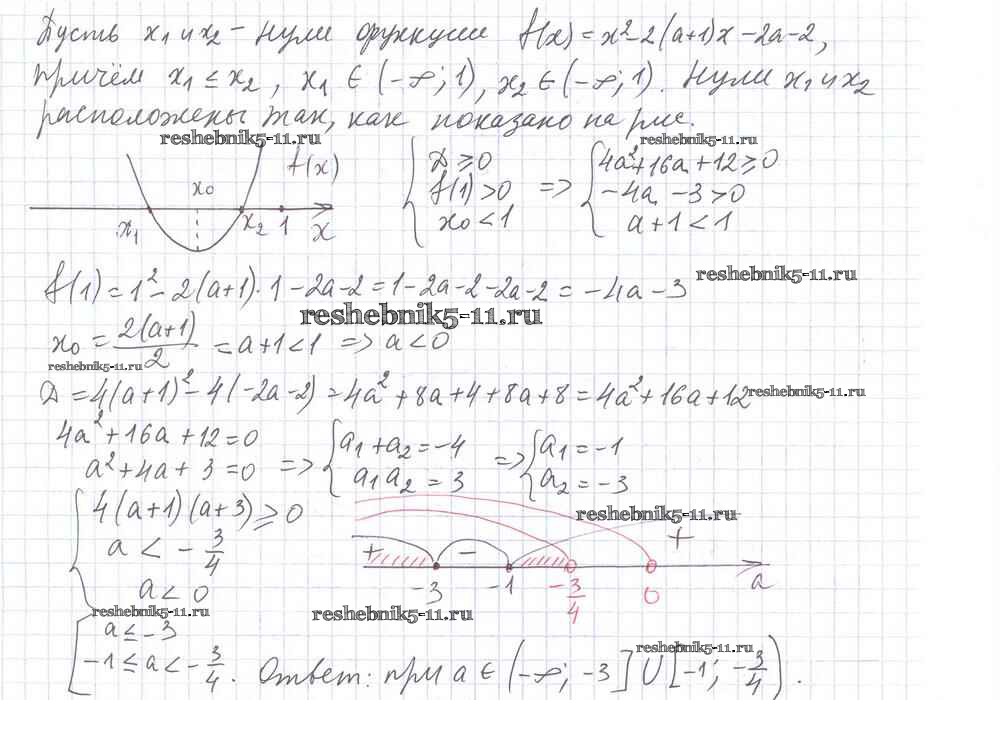 Пусть x₁ и x₂ – нули функции f(x) = x² – 2(a+1)x – 2a – 2,
причём x₁ ≤ x₂, x₁ ∈ (-∞; 1), x₂ ∈ (-∞; 1). Нули x₁ и x₂
расположены так, как показано на рис.
reshebnik5-11.ru
reshebnik5-11.ru
f(x)
x₀
x₁ x₂ 1 x
{ D ≥ 0
f(1) > 0
x₀ < 1
=> { 4a² + 16a + 12 ≥ 0
-4a - 3 > 0
a + 1 < 1
f(1) = 1² - 2(a+1)·1 - 2a - 2 = 1 - 2a - 2 - 2a - 2 = -4a - 3
reshebnik5-11.ru
reshebnik5-11.ru
x₀ = 2(a+1)/2 = a + 1 < 1 => a < 0
reshebnik5-11.ru
D = 4(a+1)² - 4(-2a-2) = 4a² + 8a + 4 + 8a + 8 = 4a² + 16a + 12
reshebnik5-11.ru
4a² + 16a + 12 = 0
a² + 4a + 3 = 0 => { a₁ + a₂ = -4
a₁a₂ = 3
=> { a₁ = -1
a₂ = -3
{ 4(a+1)(a+3) ≥ 0
a < -3/4
a < 0
reshebnik5-11.ru
+ – +
-3 -1 -3/4 0 a
reshebnik5-11.ru
reshebnik5-11.ru
[ a ≤ -3
-1 ≤ a < -3/4.
reshebnik5-11.ru
Ответ: при a ∈ (-∞; -3] ∪ [-1; -3/4).